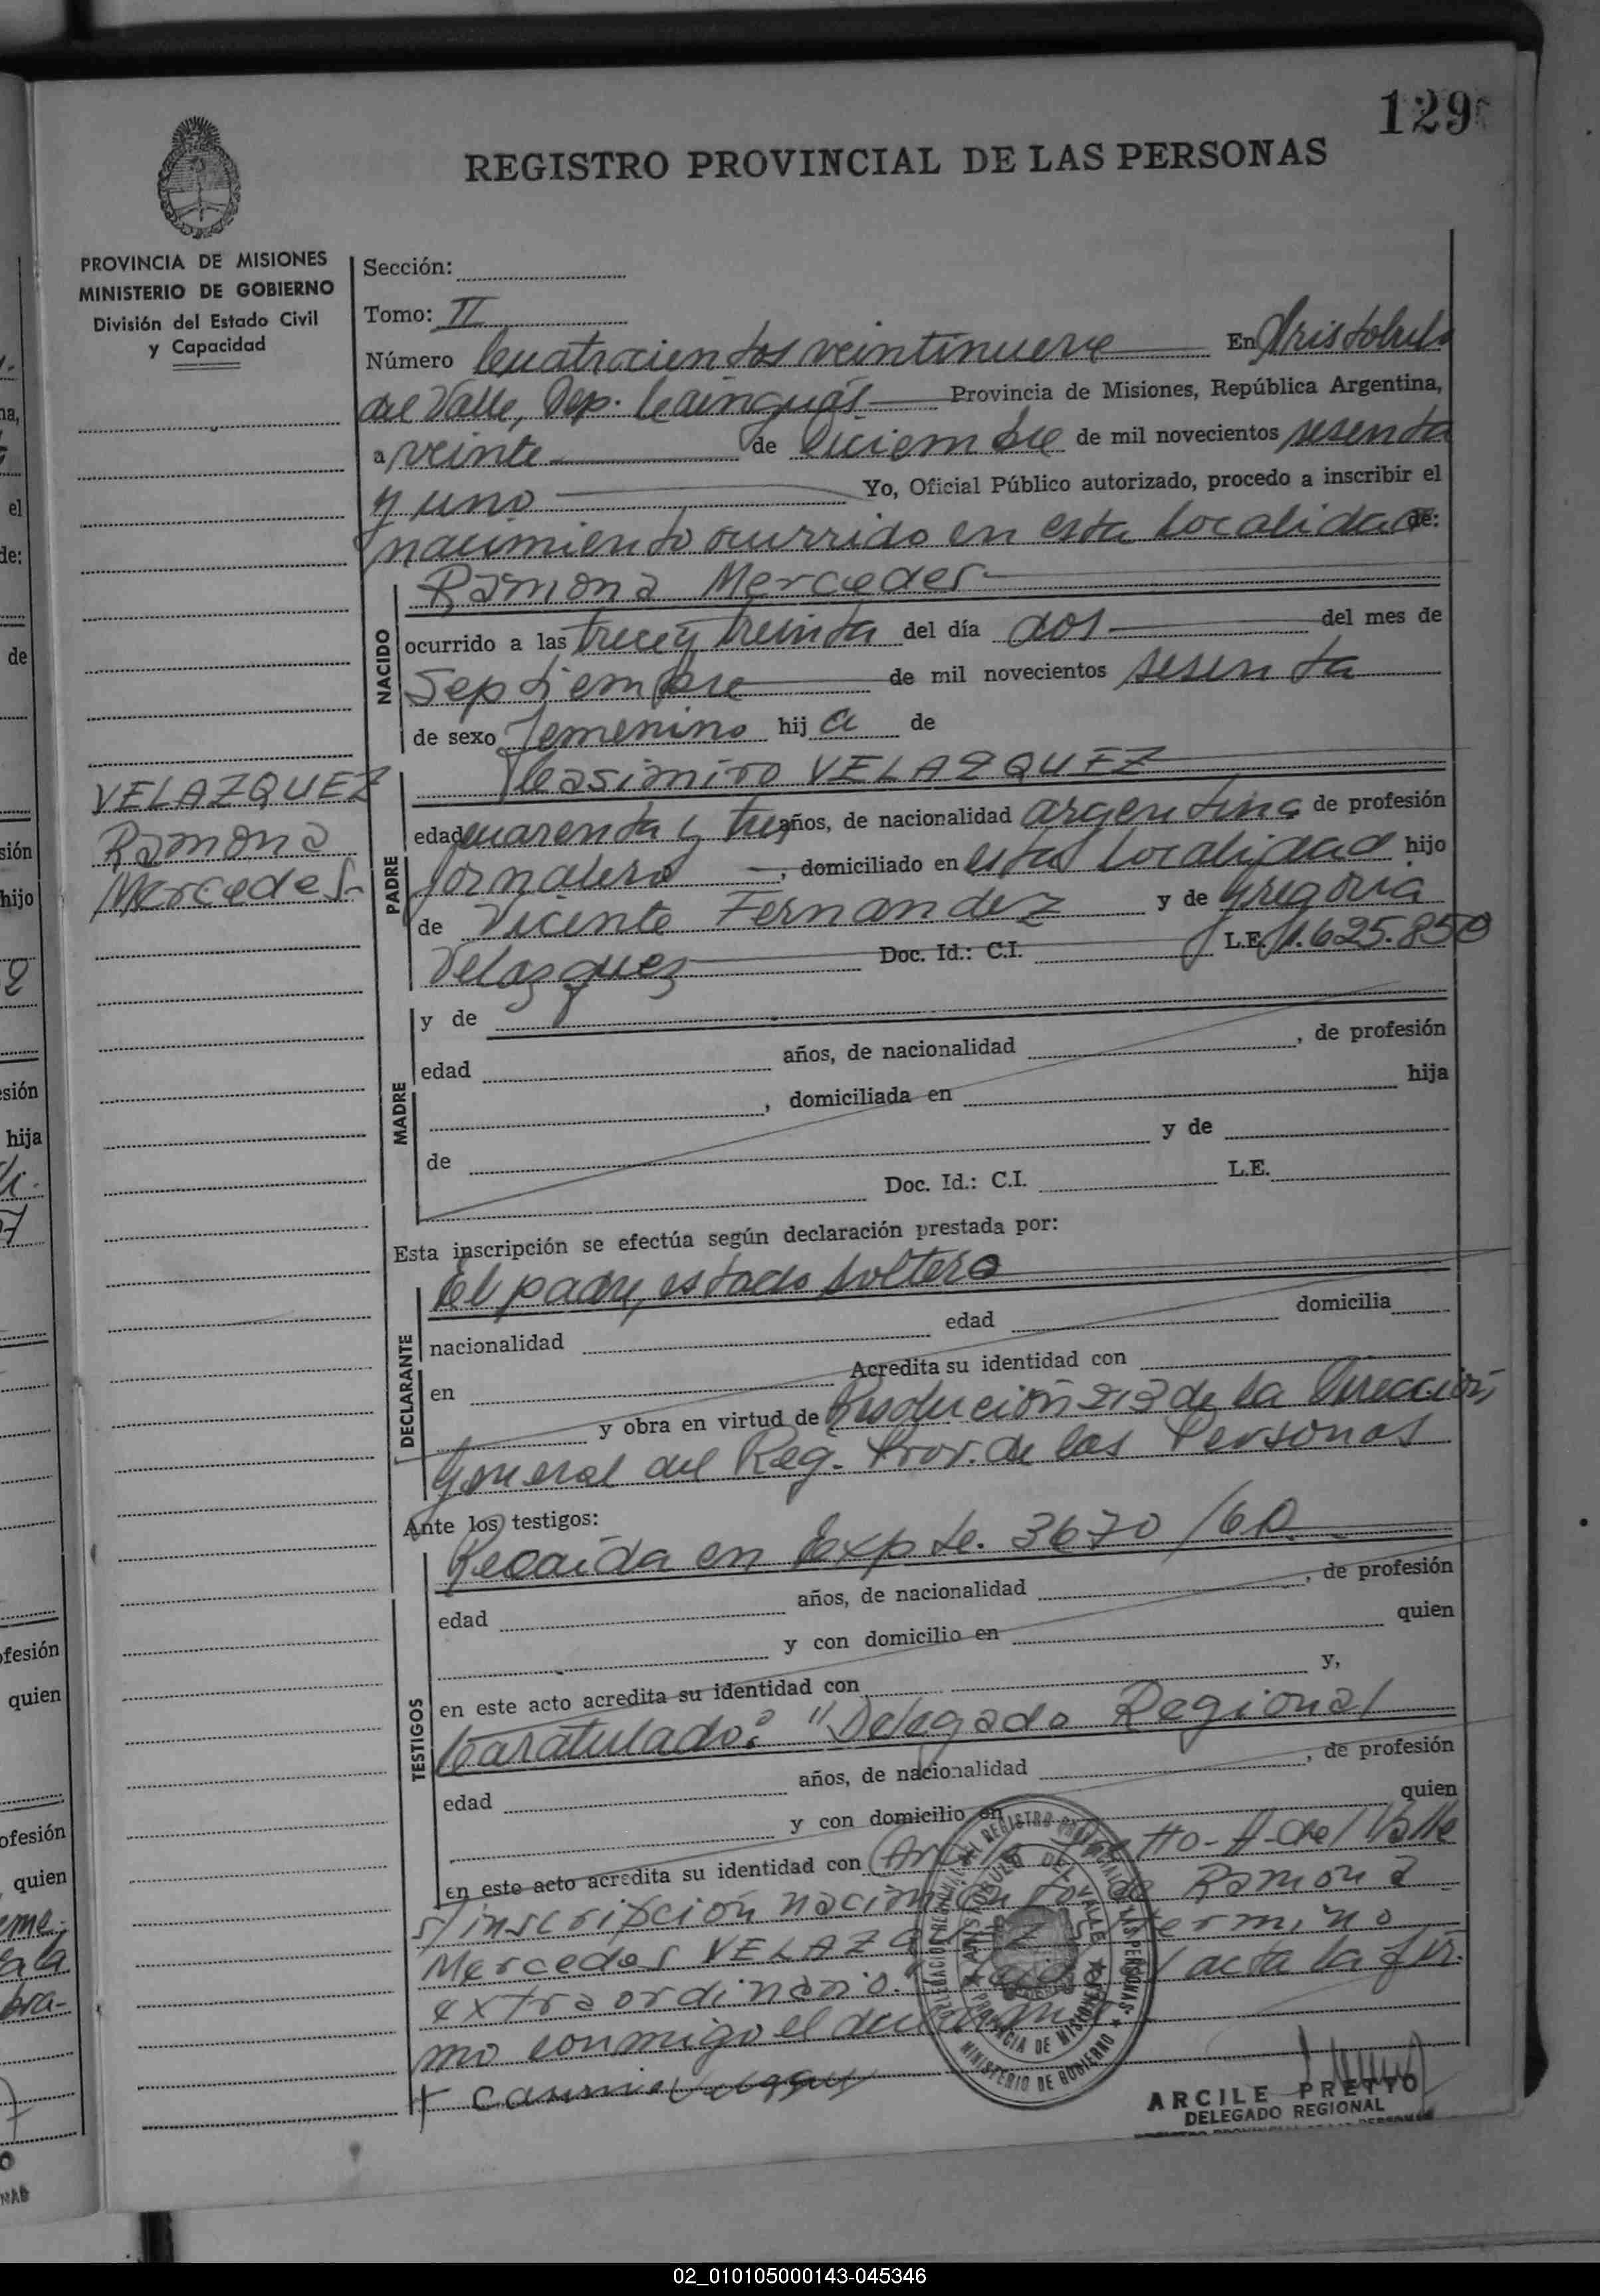 129
REGISTRO PROVINCIAL DE LAS PERSONAS
PROVINCIA DE MISIONES
MINISTERIO DE GOBIERNO
División del Estado Civil
y Capacidad
VELAZQUEZ
Ramona
Mercedes-
Sección:
Tomo: II
Número Cuatrocientos veintinueve En Aristobulo
del Valle, Dep. Cainguás Provincia de Misiones, República Argentina,
a veinte de Diciembre de mil novecientos sesenta
y uno Yo, Oficial Público autorizado, procedo a inscribir el
nacimiento ocurrido en esta localidad de:
NACIDO
Ramona Mercedes
ocurrido a las trece y treinta del día dos del mes de
Septiembre de mil novecientos sesenta
de sexo femenino hij a de
PADRE
Casimiro VELAZQUEZ
edad cuarenta y tres años, de nacionalidad argentina de profesión
jornalero, domiciliado en esta localidad hijo
de Vicente Fernandez y de Gregoria
Velazquez Doc. Id.: C.I. L.E. 1.625.850
MADRE
y de
edad años, de nacionalidad , de profesión
, domiciliada en hija
de y de
Doc. Id.: C.I. L.E.
Esta inscripción se efectúa según declaración prestada por:
DECLARANTE
El padre, estado soltero
nacionalidad edad domicilia
en Acredita su identidad con
y obra en virtud de Resolución 213 de la Dirección
General del Reg. Prov. de las Personas
Ante los testigos:
TESTIGOS
Recaída en Expte. 3670/60.
edad años, de nacionalidad , de profesión
y con domicilio en quien
en este acto acredita su identidad con y,
Caratulado: "Delegado Regional
edad años, de nacionalidad , de profesión
y con domicilio en quien
en este acto acredita su identidad con (Arcile Pretto- A. del Valle
s/inscripción nacimiento de Ramona
Mercedes VELAZQUEZ termino
extraordinario." acta la fir-
mo conmigo el declarante
ARCILE PRETTO
DELEGADO REGIONAL
MINISTERIO DE GOBIERNO
PROVINCIA DE MISIONES
02_010105000143-045346